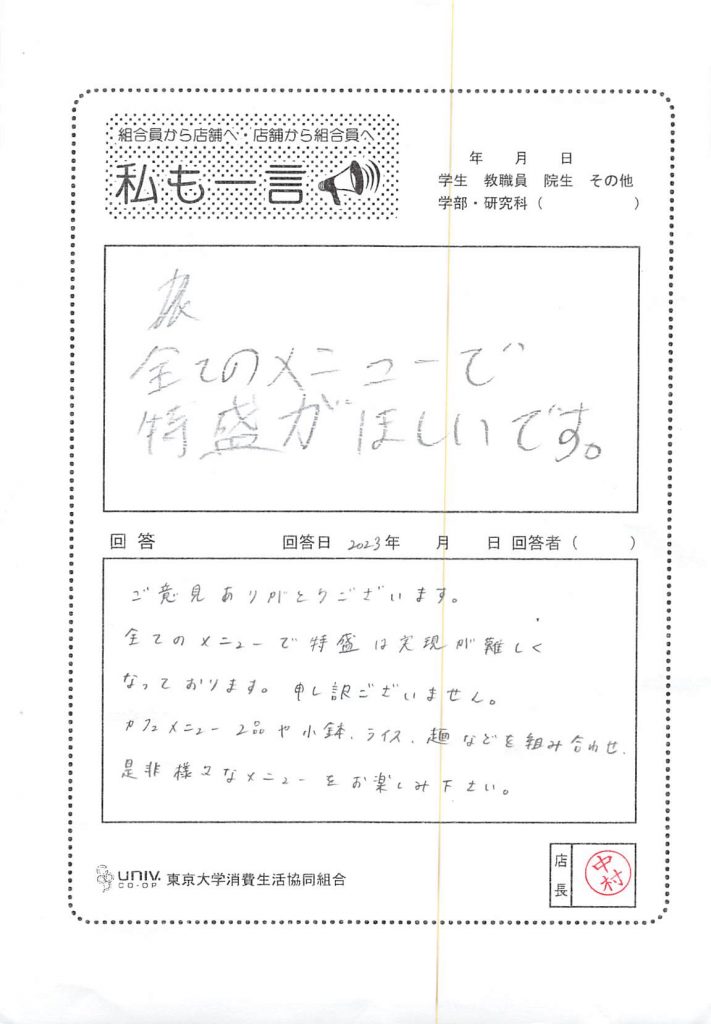 組合員から店舗へ・店舗から組合員へ
私も一言
年 月 日
学生 教職員 院生 その他
学部・研究科( )
全てのメニューで
特盛がほしいです。
回答 回答日 2023年 月 日 回答者( )
ご意見ありがとうございます。
全てのメニューで特盛は実現が難しく
なっております。申し訳ございません。
カフェメニュー2品や小鉢、ライス、麺などを組み合わせ、
是非様々なメニューをお楽しみ下さい。
UNIV.
CO-OP
東京大学消費生活協同組合
店長
中村